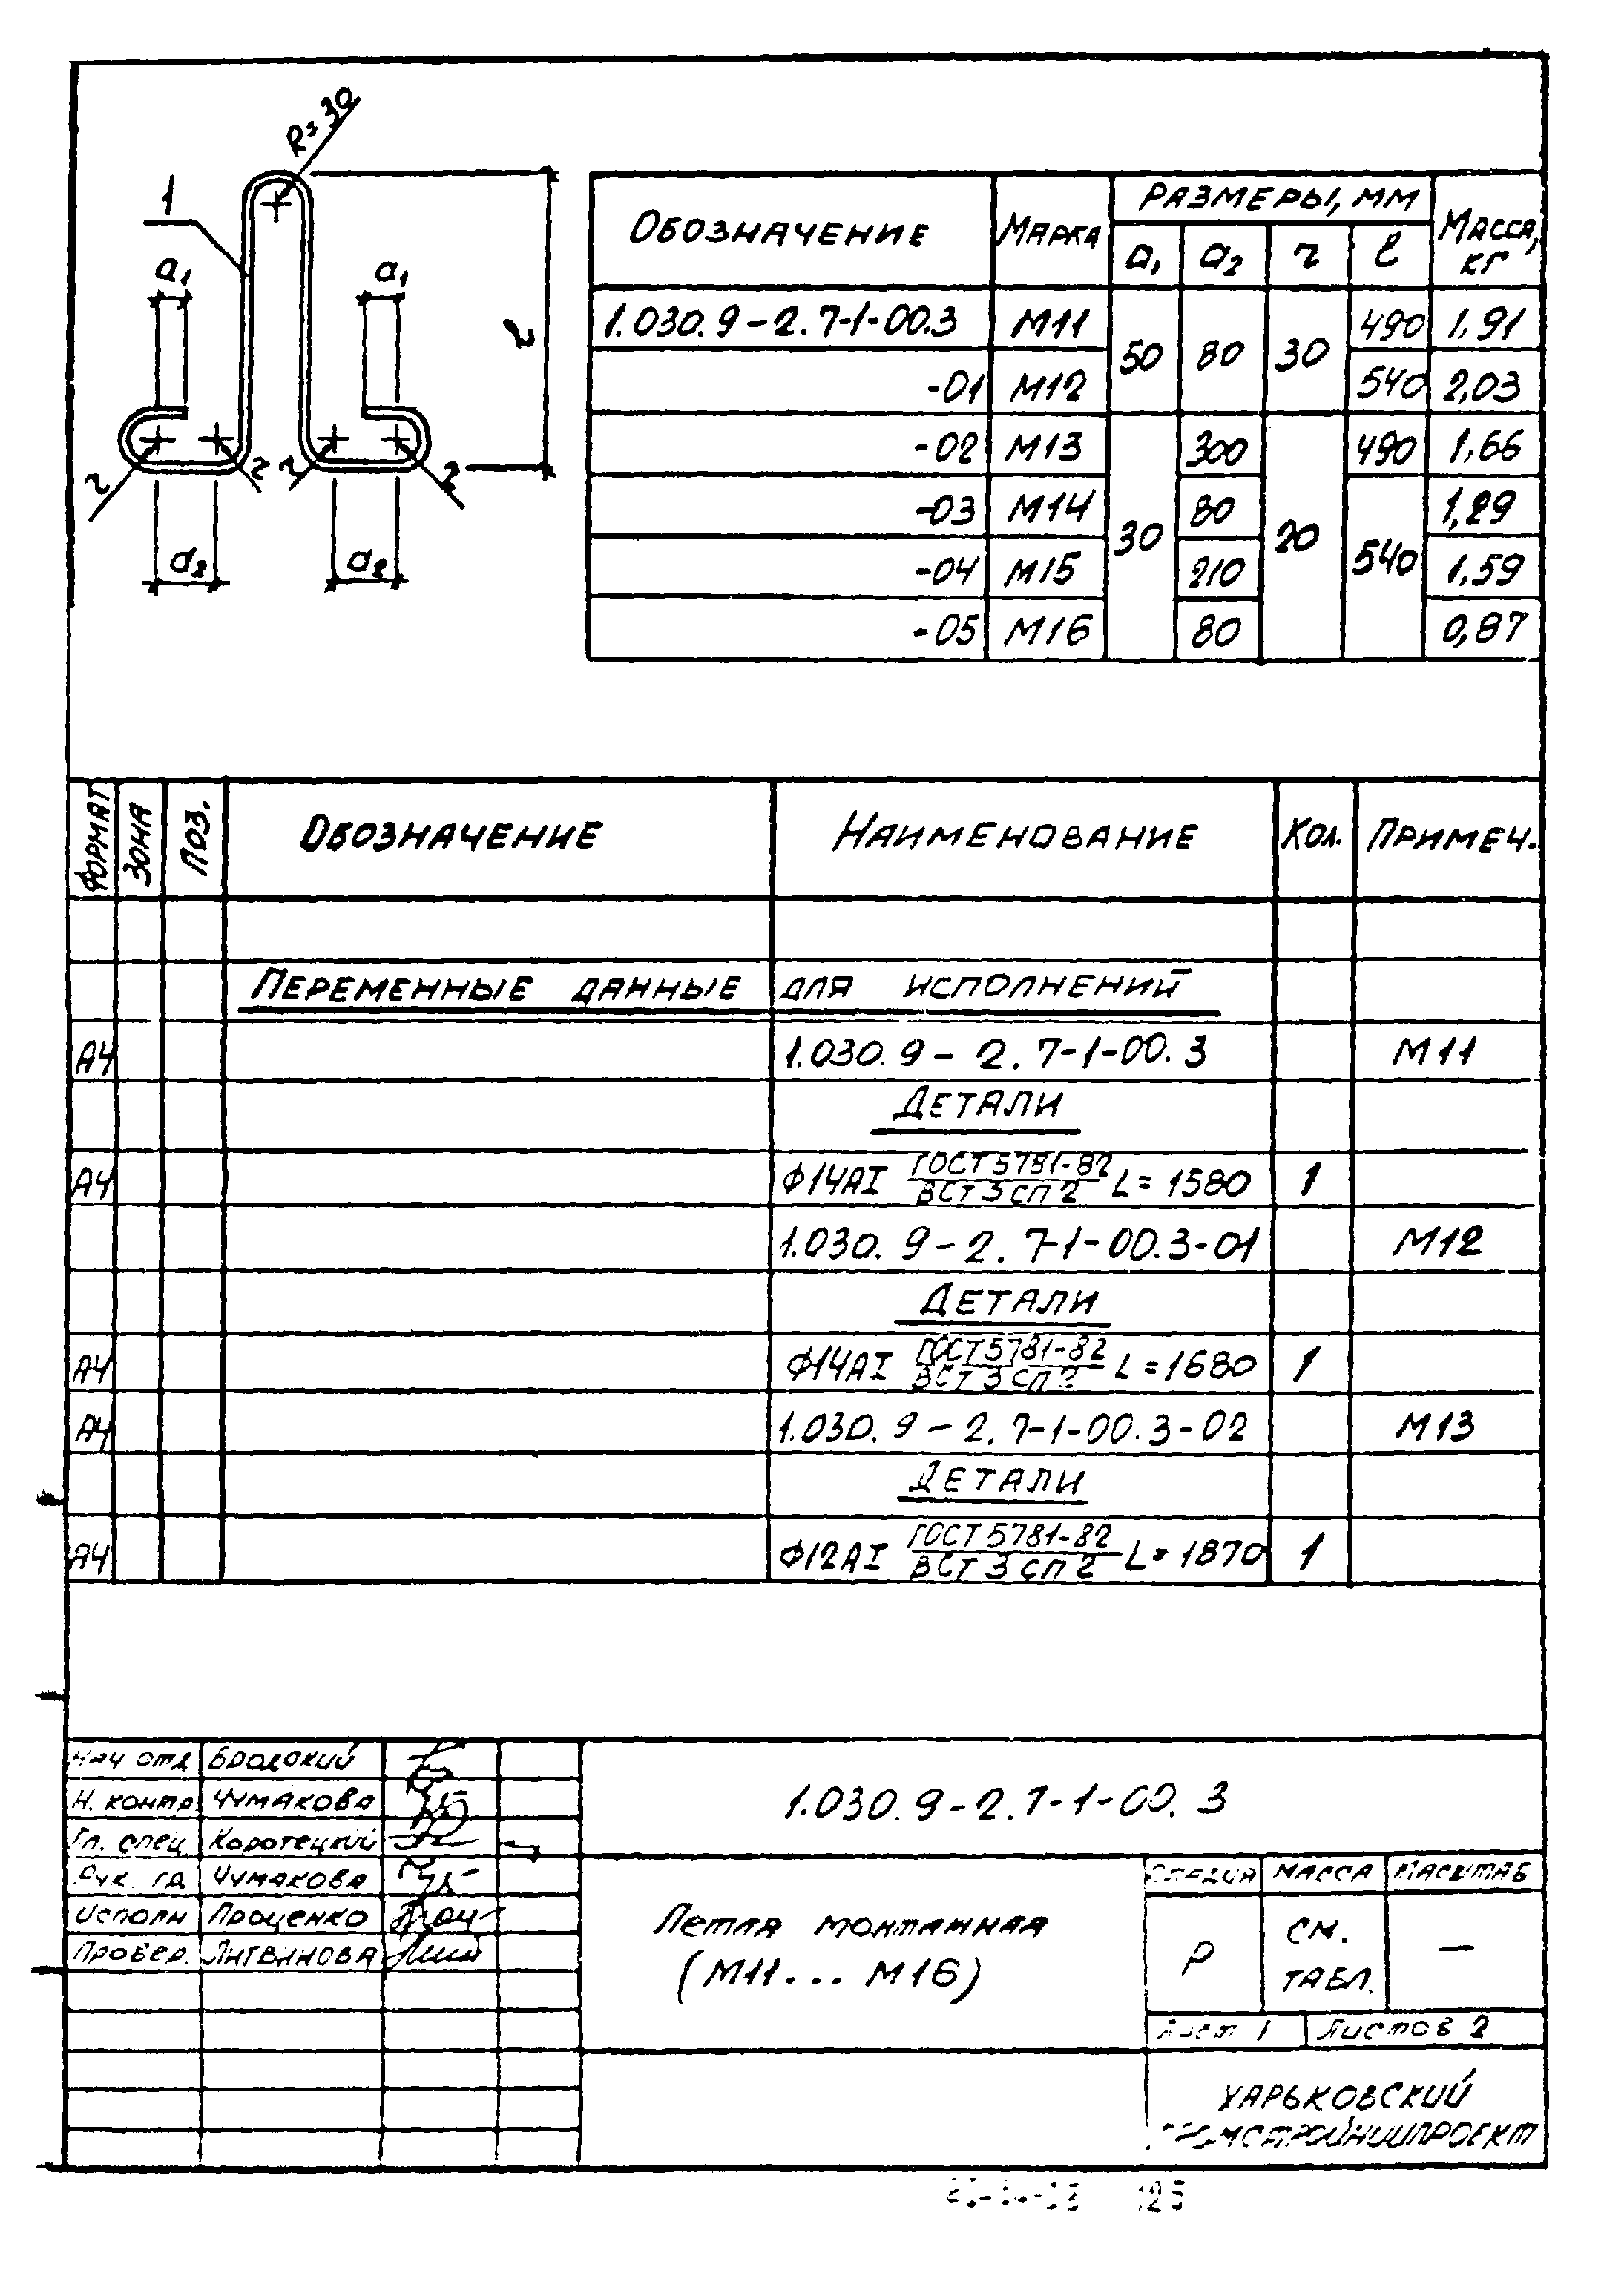 R=30
1
a₁ a₁
ℓ
r r r r
a₂ a₂
Обозначение Марка Размеры, мм Масса, кг
a₁ a₂ r ℓ
1.030.9-2.7-1-00.3 М11 50 80 30 490 1,91
-01 М12 540 2,03
-02 М13 30 300 20 490 1,66
-03 М14 80 540 1,29
-04 М15 210 1,59
-05 М16 80 0,87
Формат Зона Поз. Обозначение Наименование Кол. Примеч.
Переменные данные для исполнений
А4 1.030.9-2.7-1-00.3 М11
Детали
А4 Ф14АI ГОСТ 5781-82 / ВСт3сп2 L=1580 1
1.030.9-2.7-1-00.3-01 М12
Детали
А4 Ф14АI ГОСТ 5781-82 / ВСт3сп2 L=1680 1
А4 1.030.9-2.7-1-00.3-02 М13
Детали
А4 Ф12АI ГОСТ 5781-82 / ВСт3сп2 L=1870 1
Нач отд Бродский
Н. контр Чумакова
Гл. спец. Коротецкий
Рук. гр Чумакова
Исполн Проценко
Провер. Литвинова
1.030.9-2.7-1-00.3
Петля монтажная
(М11... М16)
Стадия Масса Масштаб
Р см. табл. —
Лист 1 Листов 2
Харьковский
Промстройниипроект